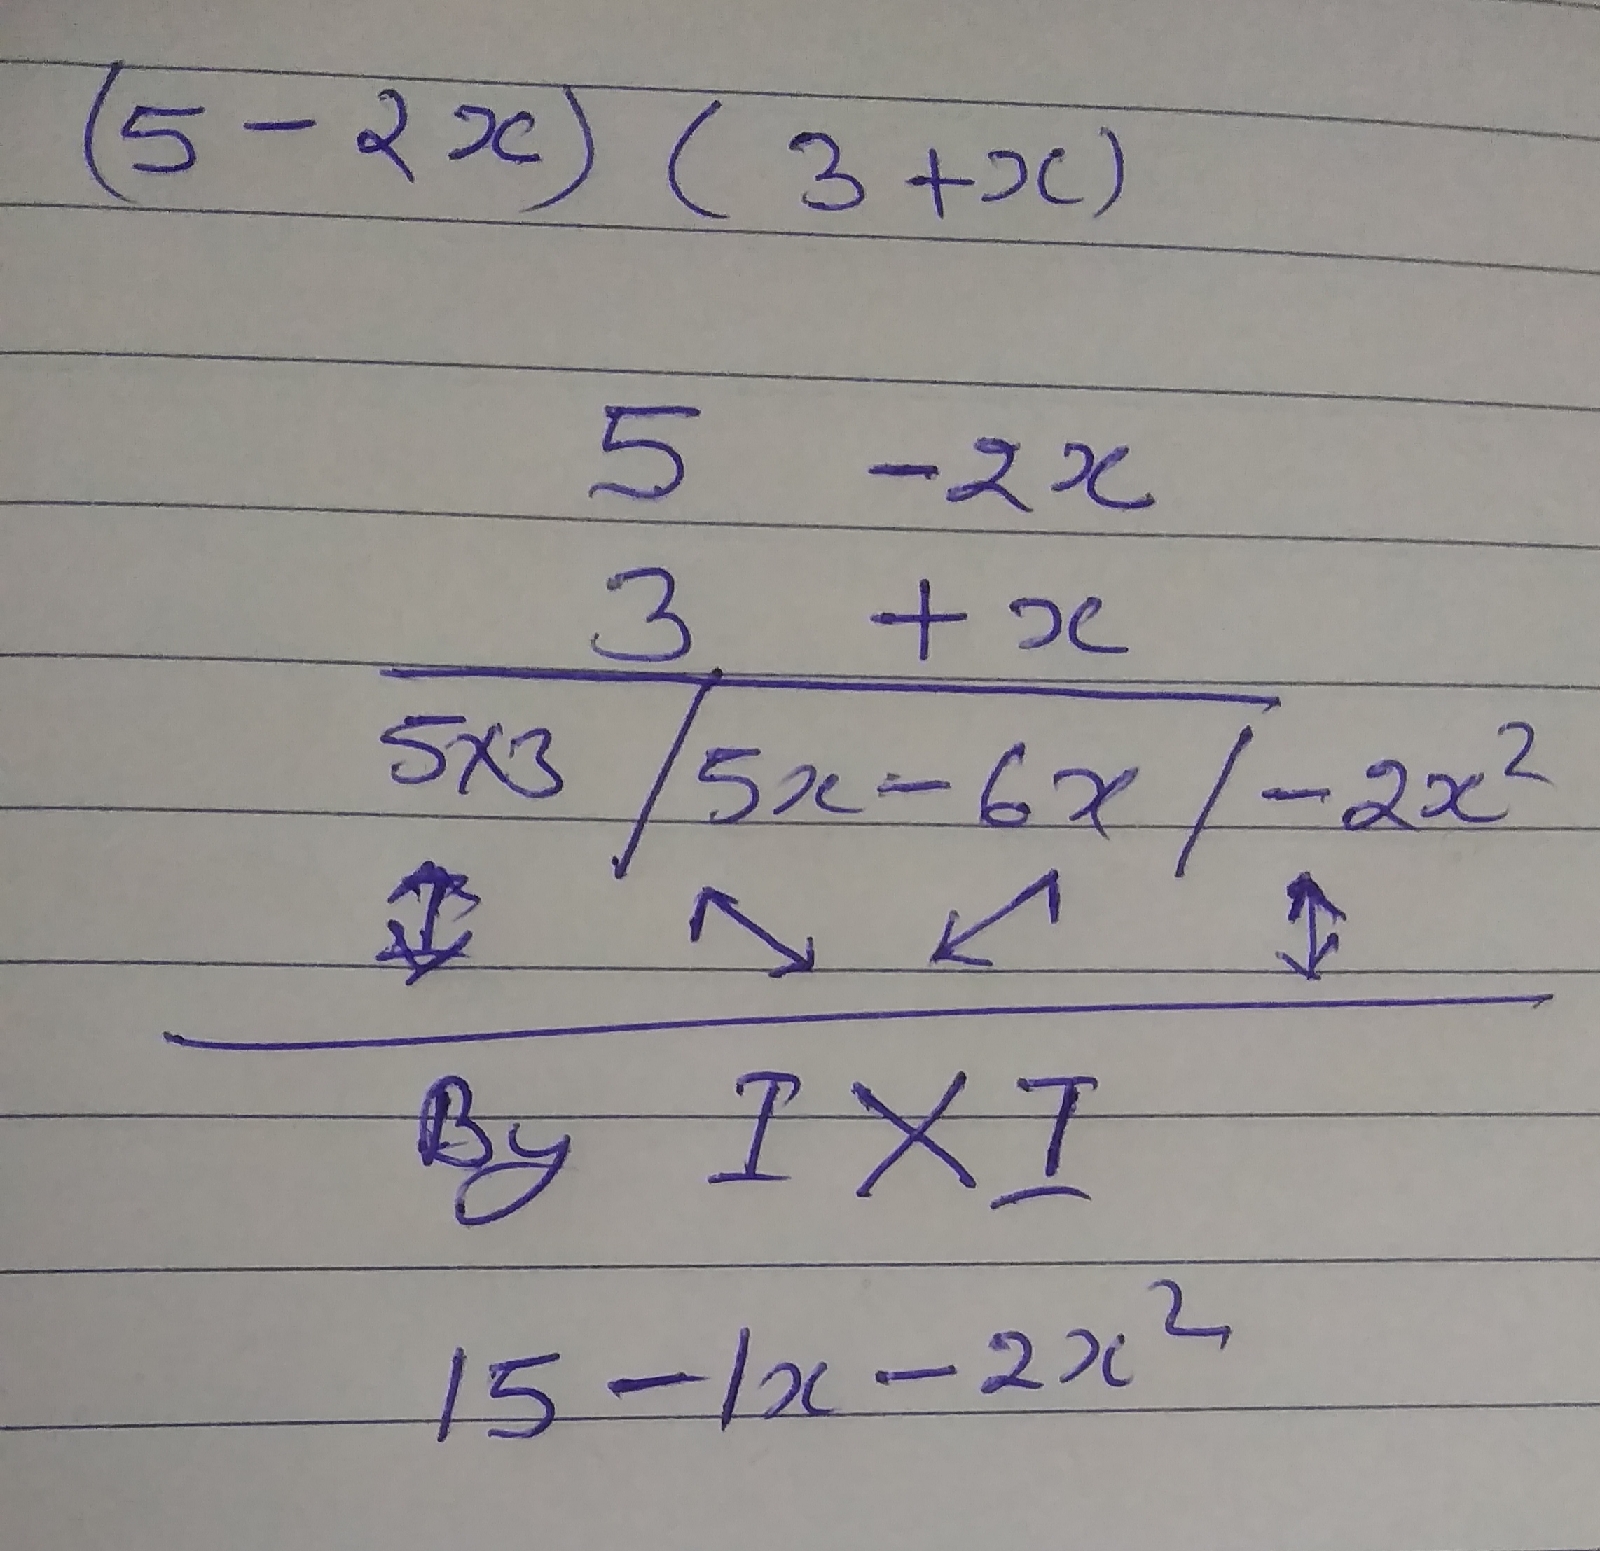 (5 - 2x) ( 3 + x)
5 - 2x
3 + x
5x3 / 5x - 6x / - 2x²
↕ ↘ ↙ ↕
By I X I
15 - 1x - 2x²